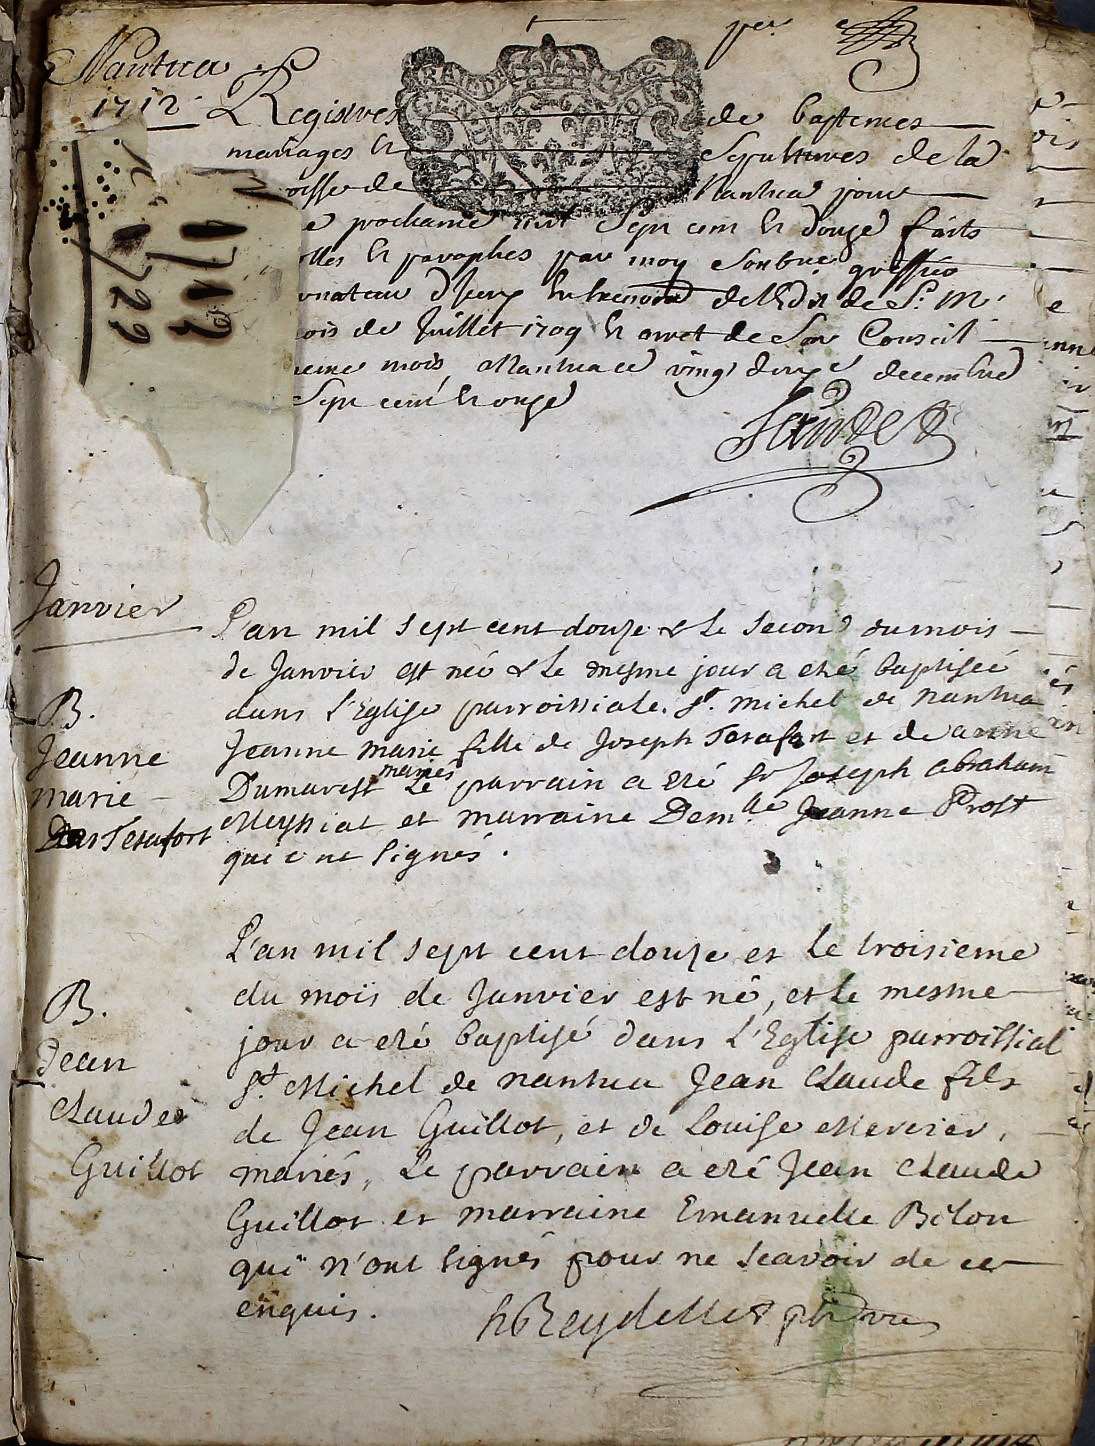 Nantua
1712
per
Registres de baptemes
mariages et Sepultures de la
oisse de Nantua pour
e prochaine mil Sept cent et douze faits
olles et paraphes par moy greffier
de
ois de Juillet 1709 et arret de Son Conseil
eme mois, a Nantua ce vingt decembre
Sept cent et onze
1713
1729
GEN
Janvier
L'an mil sept cent douze & le second du mois
de Janvier est née & le mesme jour a eté baptisée
dans l'Eglise parroissiale St. michel de nantua
Jeanne marie fille de Joseph Terafort et de anne
Dumarest mariés Le parrain a eté sr Joseph abraham
Meyssiat et marraine Dem.lle Jeanne Prost
qui ont signés.
B.
Jeanne
marie
Terafort
L'an mil sept cent douze et le troisieme
du mois de Janvier est né, et le mesme
jour a eté baptisé dans L'Eglise parroissial
St. Michel de nantua Jean Claude fils
de Jean Guillot, et de Louise Mercier,
mariés, Le parrain a eté Jean Claude
Guillot et marraine Emanuelle Bilon
qui n'ont signés pour ne scavoir de ce
enquis.
B.
Jean
Claude
Guillot
Reydellet